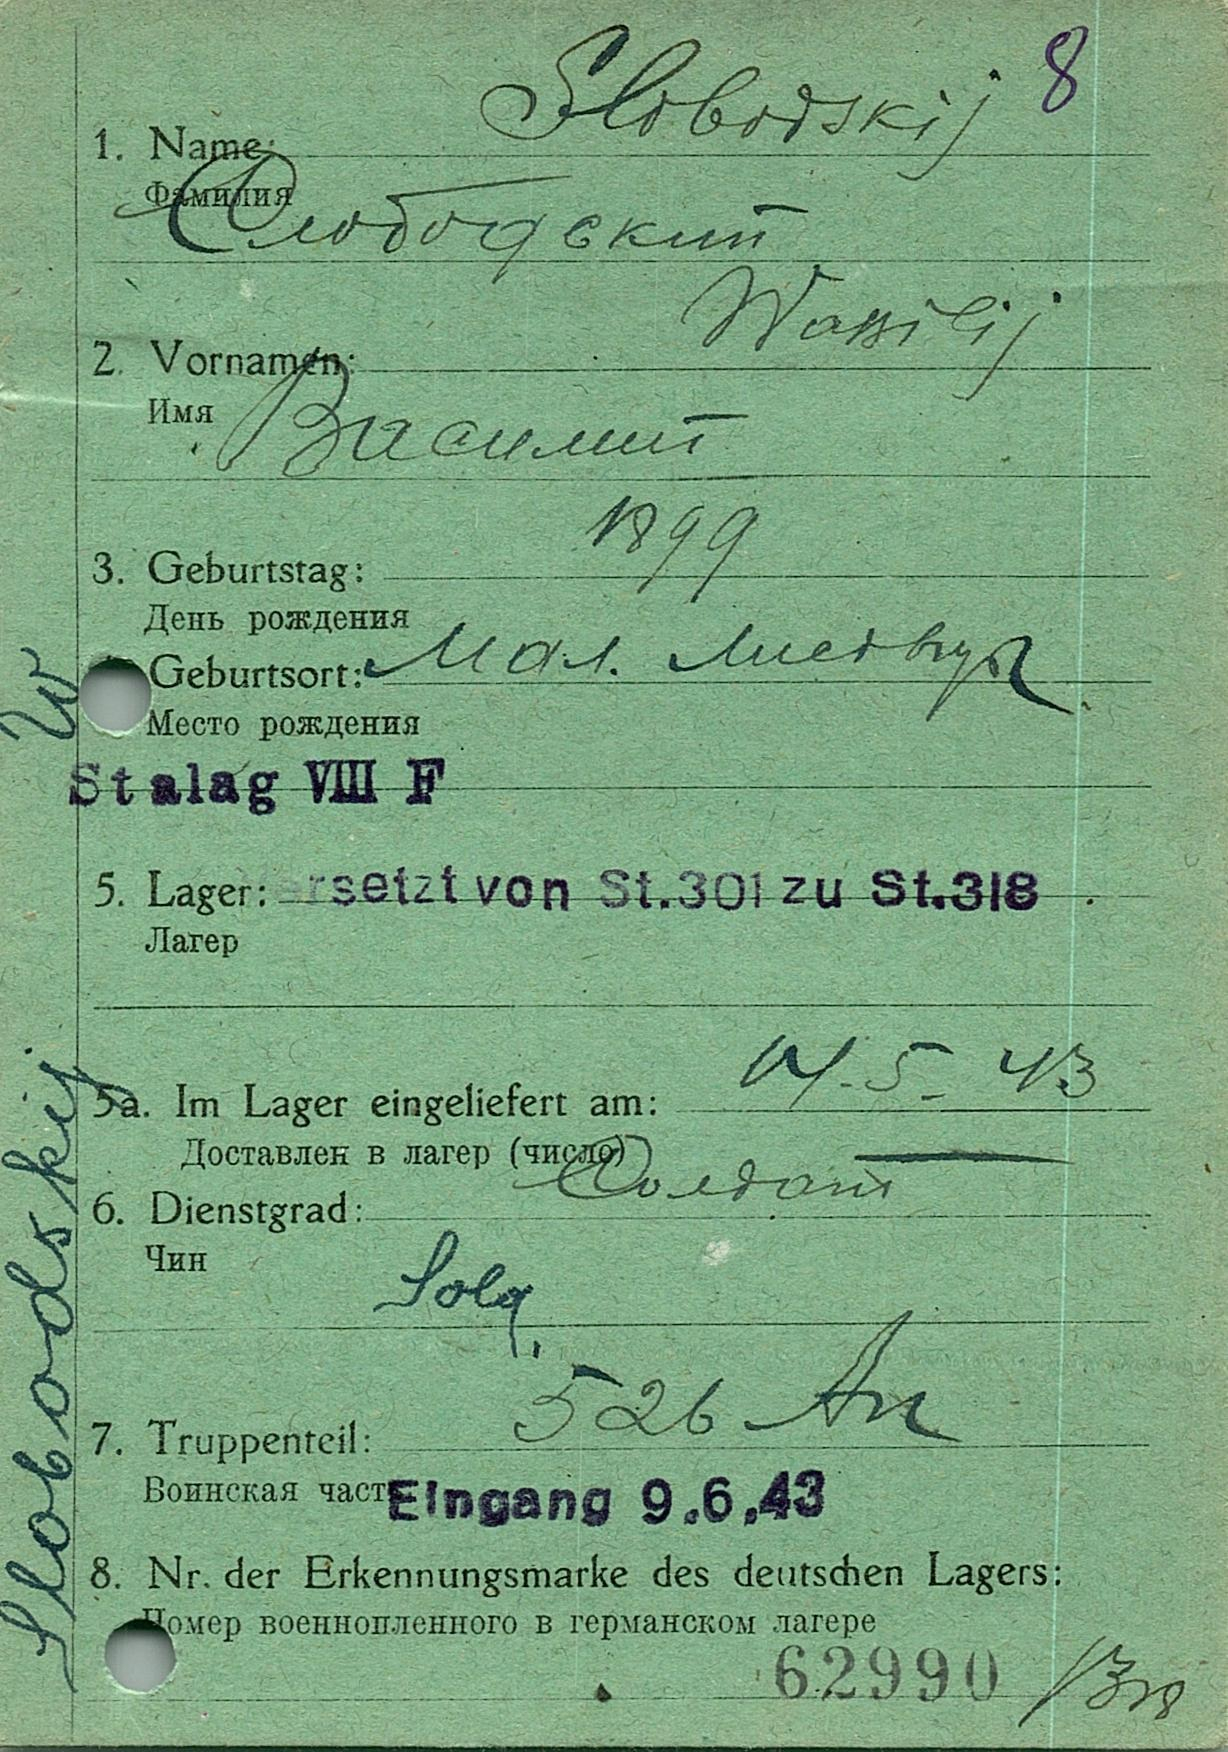 8
Slobodskij
1. Name:
Фамилия
Слободский
Wassilij
2. Vornamen:
Имя
Василий
1899
3. Geburtstag:
День рождения
Geburtsort: Мал.
Место рождения
Stalag VIII F
5. Lager: Versetzt von St.301 zu St.318
Лагер
14.5.43
5a. Im Lager eingeliefert am:
Доставлен в лагер (число)
Солдат
6. Dienstgrad:
Чин
Sold.
526 Ап
7. Truppenteil:
Воинская част
Eingang 9.6.43
8. Nr. der Erkennungsmarke des deutschen Lagers:
Номер военнопленного в германском лагере
62990 /318
Slobodskij W